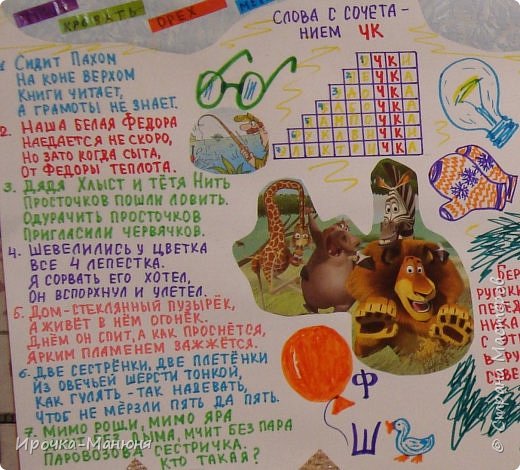 КРОВАТЬ
ОРЕХ
СЛОВА С СОЧЕТА-
НИЕМ ЧК
1. Сидит Пахом
На коне верхом
Книги читает,
А грамоты не знает.
2. Наша белая Федора
Наедается не скоро,
Но зато когда сыта,
От Федоры теплота.
3. Дядя Хлыст и тётя Нить
Просточков пошли ловить.
Одурачить просточков
Пригласили червячков.
4. Шевелились у цветка
Все 4 лепестка.
Я сорвать его хотел,
Он вспорхнул и улетел.
5. Дом-стеклянный пузырёк,
А живёт в нём огонёк.
Днём он спит, а как проснётся,
Ярким пламенем зажжётся.
6. Две сестрёнки, две плетёнки
Из овечьей шерсти тонкой,
Как гулять - так надевать,
Чтоб не мёрзли пять да пять.
7. Мимо рощи, мимо яра
мчит без пара
Паровозова сестричка.
Кто такая?
Ф
Ш
Ирочка-Манюня
© Страна Мастеров